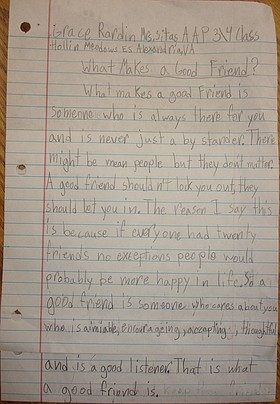 Grace Rardin Ms. Sitas AAP 3\4 Class
Hollin Meadows ES Alexandria, VA
What Makes a Good Friend?
What makes a good Friend is
someone who is always there for you
and is never just a by stander. There
might be mean people but they don't matter.
A good friend shouldn't lock you out, they
should let you in. The reason I say this
is because if everyone had twenty
friends no exceptions people would
probably be more happy in life. So a
good friend is someone who cares about you
who is aimiable, encourageing, accepting, thoughtful
and is a good listener. That is what
a good friend is.